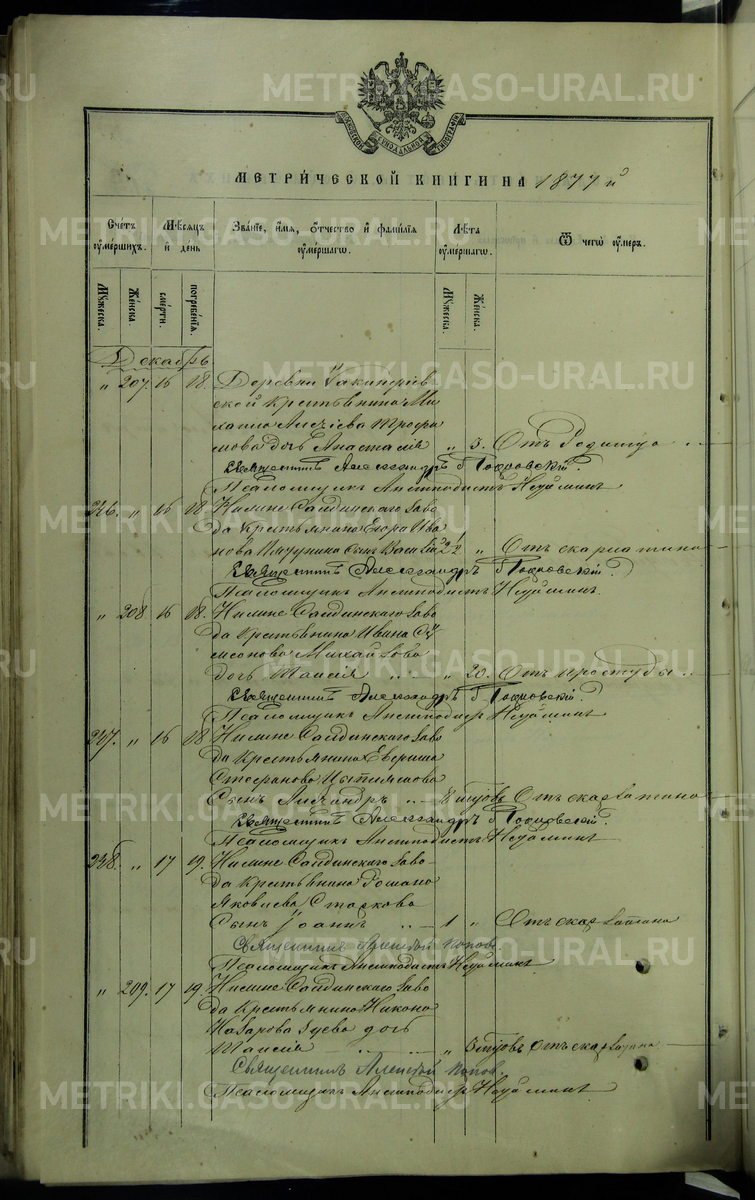 МЕТРИ́ЧЕСКОЙ КНИГИ НА 1877 й
Сче́тъ ᲂу҆ме́ршихъ.
Мѣ́сяцъ и҆ де́нь
Зва́нїе, и҆́мя, ѻ҆́тчество и҆ фамилїя ᲂу҆ме́ршагѡ.
Лѣ́та ᲂу҆ме́ршагѡ.
Ѿ чегѡ̀ ᲂу҆́меръ.
Му́жеска.
Же́нска.
сме́рти.
погребе́нїя.
Му́жеска.
Же́нска.
Декабрь.
" 207. 16 18. Деревни
ской крестьянина Ми
хаила Трофи
мова дочь Анастасія " 3. Отъ Родимца
Священникъ Александръ Покровскій.
Псаломщикъ Антиподистъ Неуйминъ
246. " 16 18. Нижне Салдинскаго заво
да крестьянина Егора Ива
нова сынъ Василій 2½ " Отъ скарлатины
Священникъ Александръ Покровскій.
Псаломщикъ Антиподистъ Неуйминъ.
" 208 16 18. Нижне Салдинскаго заво
да крестьянина Ивана Си
меонова
дочь Таисія " 20. Отъ простуды
Священникъ Александръ Покровскій.
Псаломщикъ Антиподистъ Неуйминъ
247. " 16 18 Нижне Салдинскаго заво
да крестьянина
Стефанова
Сынъ Александръ 8 мѣсяцовъ Отъ скарлатины
Священникъ Александръ Покровскій.
Псаломщикъ Антиподистъ Неуйминъ
248. " 17 19. Нижне Салдинскаго заво-
да крестьянина Романа
Яковлева Старкова
Сынъ Іоаннъ 1 " Отъ скарлатины
Священникъ Алексій Поповъ
Псаломщикъ Антиподистъ Неуйминъ
" 209. 17 19. Нижне Салдинскаго заво
да крестьянина Никона
Назарова Зуева дочь
Таисія " мѣсяцовъ Отъ скарлатины
Священникъ Алексій Поповъ.
Псаломщикъ Антиподистъ Неуйминъ
METRIKI.GASO-URAL.RU